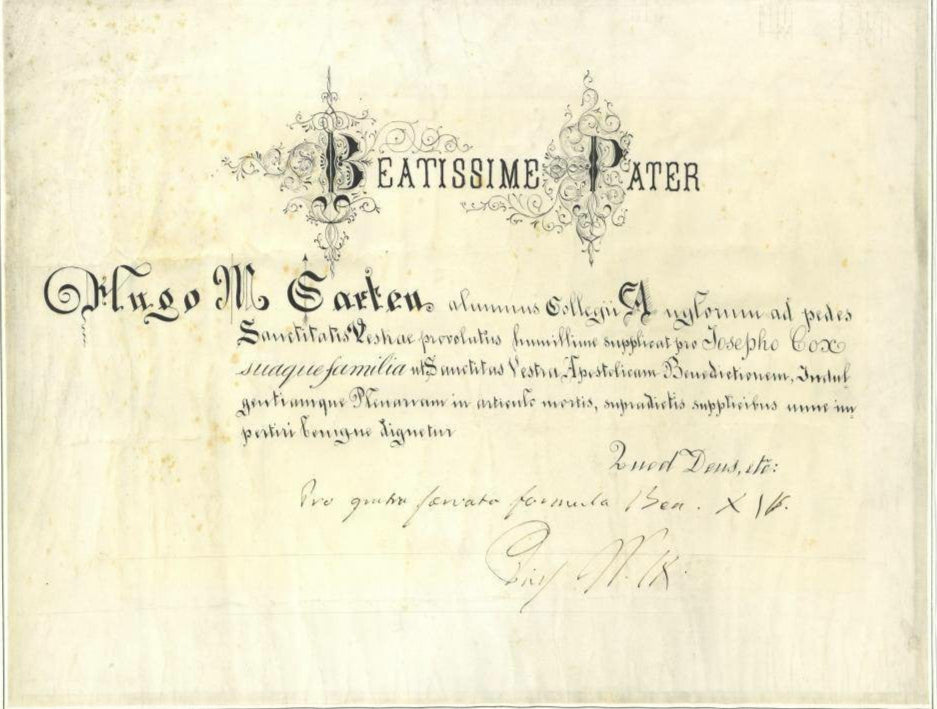 BEATISSIME PATER
Hugo M Carten alumnus Collegii Anglorum ad pedes
Sanctitatis Vestrae provolutus humillime supplicat pro Josepho Cox
suaque familia ut Sanctitas Vestra, Apostolicam Benedictionem, Indul
gentiamque Plenariam in articulo mortis, supradictis supplicibus nunc im
pertiri benigne dignetur
Quod Deus, etc:
Pro gratia servata formula Ben. XIV.
Pius